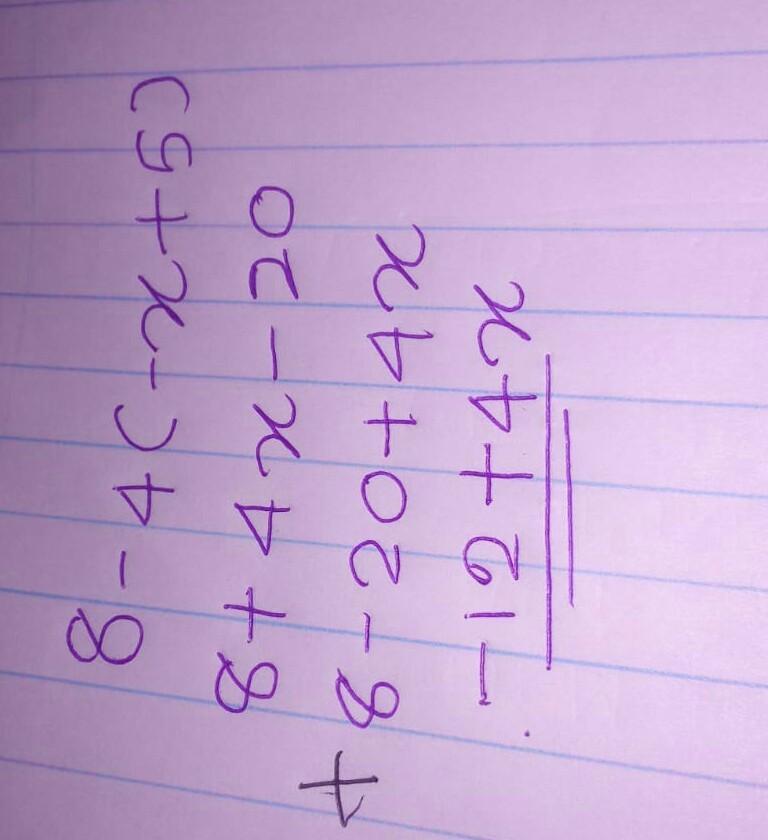 8 - 4(-x + 5)
8 + 4x - 20
+ 8 - 20 + 4x
- 12 + 4x